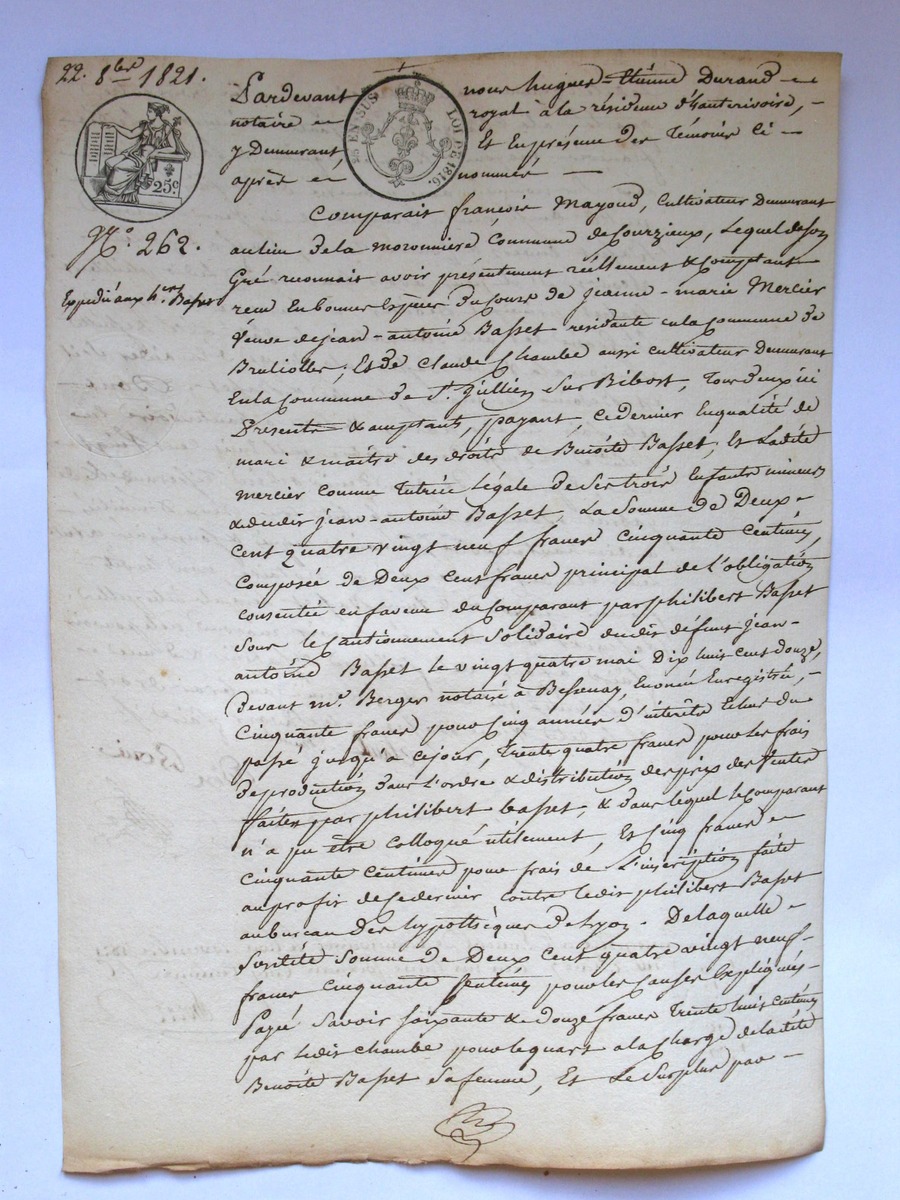 22. 8bre 1821.
25 EN SUS
LOI DE 1816.
25c.
No. 262.
Expédié aux hers Basset
Pardevant nous hugues-étienne Durand
notaire royal à la résidence d'hauterivoire,
y Demeurant Et En présence des Témoins Ci
après nommés
Comparait françois Mayoud, Cultivateur Demeurant
au lieu de la moronnière Commune de Courzieux, Lequel de son
Gré reconnait avoir présentement réellement & Comptant
reçu En bonnes Espèces du Cours de jeanne-marie Mercier
Veuve de jean-antoine Basset résidante en la Commune de
Brulioles; Et de Claude Chambe aussi cultivateur Demeurant
En la Commune de St. Jullien Sur Bibost, Tous deux ici
Présents & acceptants, payant, ce dernier En qualité de
mari & maître des droits de Benoîte Basset, Et Ladite
mercier comme Tutrice Légale de Ses trois Enfants mineurs
& dudit jean-antoine Basset, La Somme de Deux
cent quatre vingt neuf francs cinquante centimes,
composée de Deux Cent francs principal de l'obligation
consentie en faveur du Comparant par philibert Basset
sous le Cautionnement Solidaire dudit défunt jean-
antoine Basset le vingt quatre mai Dix huit cent douze,
Devant me. Berger notaire à Bessenay, En onée Enregistré,
Cinquante francs pour Cinq années d'intérêts Echus du
passé jusqu'à ce jour, Trente quatre francs pour les frais
de production dans l'ordre & distribution des prix des Ventes
faites par philibert basset, & dans lequel le Comparant
n'a pu être colloqué utilement, Et Cinq francs
cinquante Centimes pour frais de L'inscription faite
au profit de Ce dernier contre ledit philibert Basset
au bureau des hypothèques de Lyon. De laquelle
susdite somme de Deux Cent quatre vingt neuf
francs Cinquante Centimes pour les Causes Expliquées
Payé Savoir Soixante & Douze francs Trente huit Centimes
par Ledit chambe pour le quart a la Charge de ladite
Benoîte Basset sa femme, Et Le Surplus par